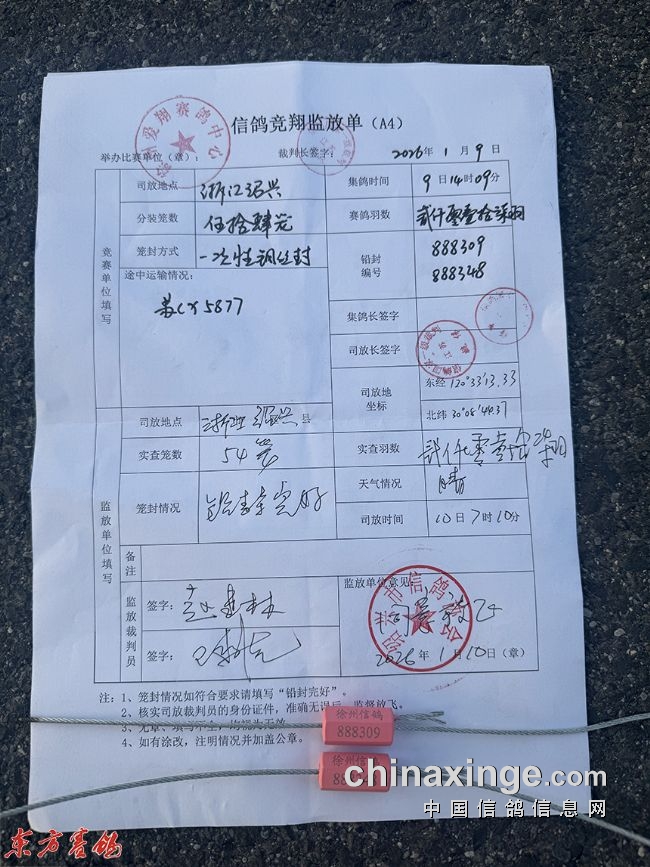 信鸽竞翔监放单（A4）
举办比赛单位（章）： 裁判长签字： 2026年 1月 9日
竞赛单位填写
司放地点 浙江绍兴 集鸽时间 9日14时09分
分装笼数 伍拾肆笼 赛鸽羽数 贰仟零壹拾柒羽
笼封方式 一次性钢丝封 铅封编号 888309
888348
途中运输情况：
苏CX5877
集鸽长签字
司放长签字
司放地坐标 东经 120°33'13.33
北纬 30°08'44.37
监放单位填写
司放地点 浙江 绍兴县 实查羽数 贰仟零壹拾柒羽
实查笼数 54笼 天气情况 晴
笼封情况 铅封完好 司放时间 10日7时10分
备注
监放裁判员 签字： 监放单位意见：
签字： 同意放飞
2026年 1月10日（章）
注：1、笼封情况如符合要求请填写“铅封完好”。
2、核实司放裁判员的身份证件，准确无误后，监督放飞。
3、无章、填写不全，均视为无效。
4、如有涂改，注明情况并加盖公章。
徐州信鸽
888309
徐州信鸽
chinaxinge.com
中国信鸽信息网
东方赛鸽